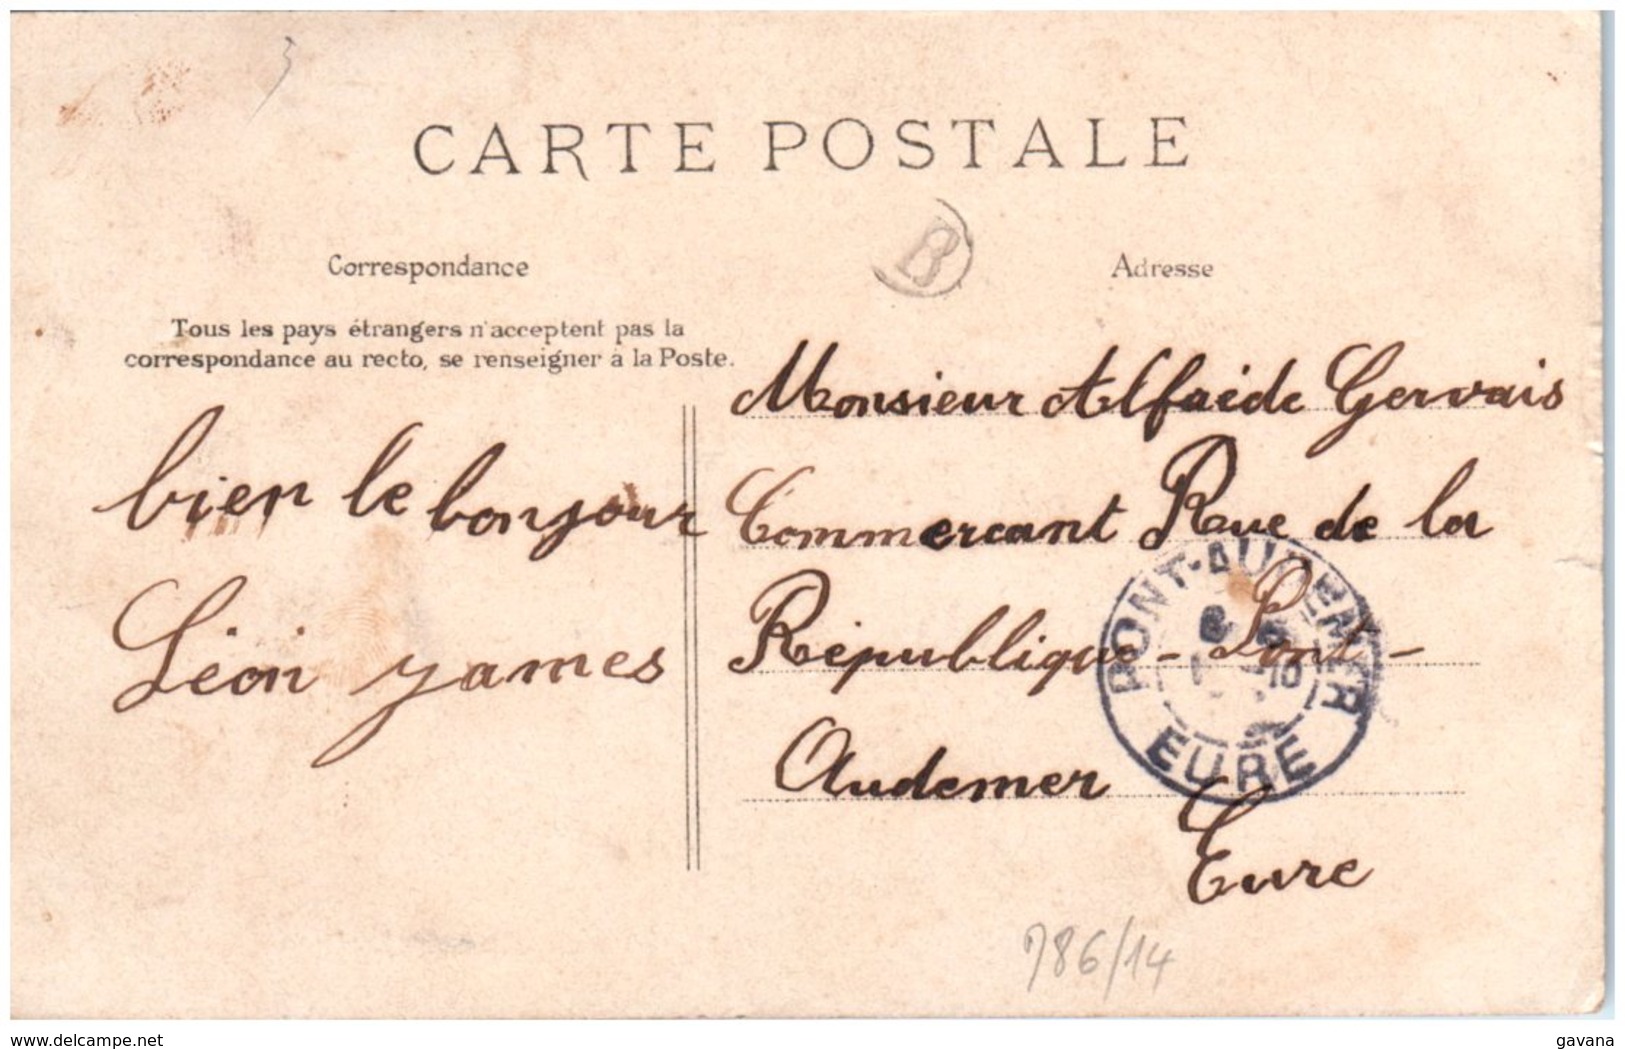 3
CARTE POSTALE
B
Correspondance
Adresse
Tous les pays étrangers n'acceptent pas la
correspondance au recto, se renseigner à la Poste.
bien le bonjour
Léon yames
Monsieur Alfraide Gervais
Commercant Rue de la
République - Pont -
Audemer
Eure
PONT-AUDEMER
10
EURE
786/14
www.delcampe.net
gavana